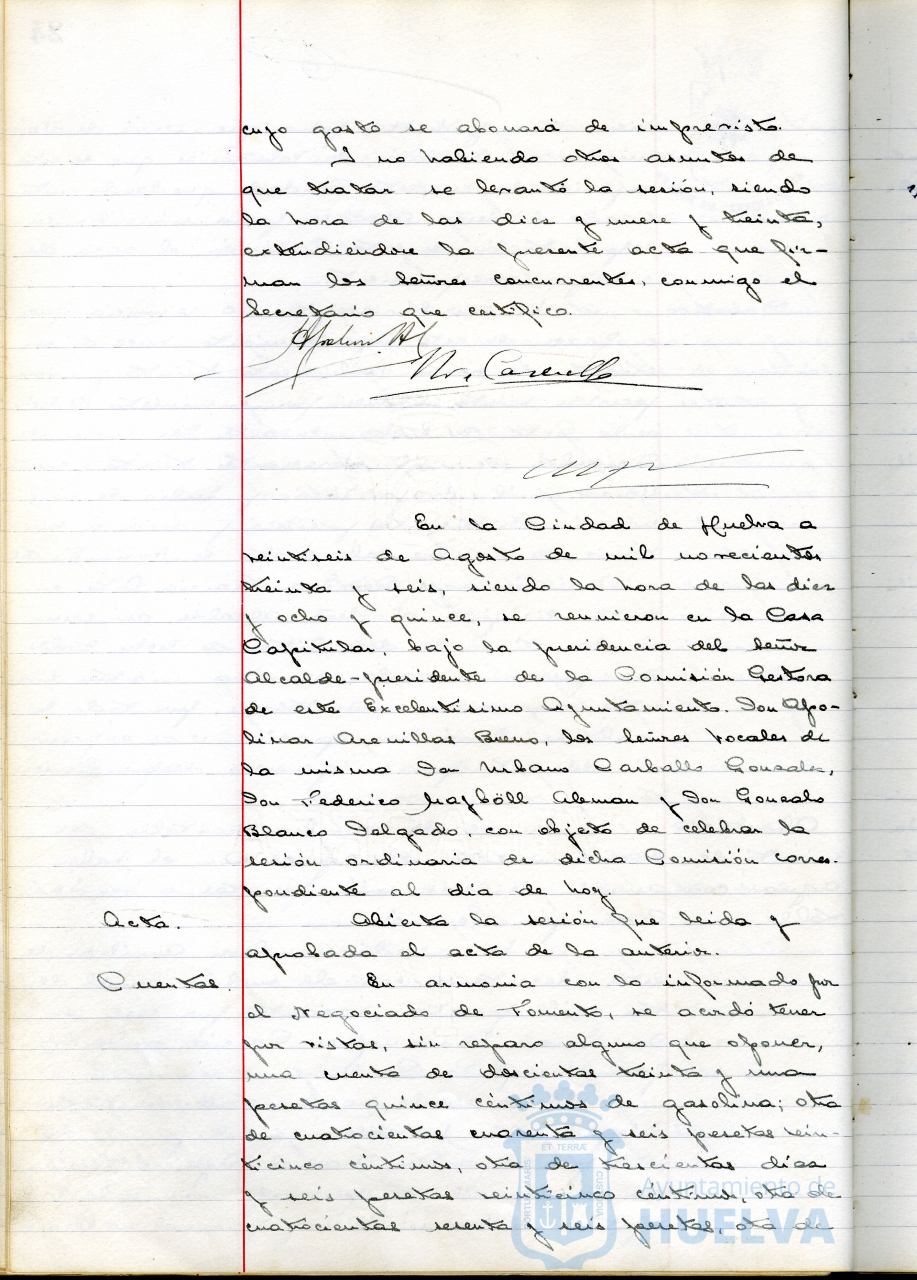 cuyo gasto se abonará de imprevisto.
Y no habiendo otros asuntos de
que tratar se levantó la sesión, siendo
la hora de las diez y nueve y treinta,
extendiéndose la presente acta que fir-
man los Señores concurrentes, conmigo el
Secretario que certifico.
En la Ciudad de Huelva a
veintiseis de Agosto de mil novecientos
treinta y seis, siendo la hora de las diez
y ocho y quince, se reunieron en la Casa
Capitular, bajo la presidencia del Señor
Alcalde-presidente de la Comisión Gestora
de este Excelentísimo Ayuntamiento. Don Apo-
linar Arenillas Bueno, los Señores Vocales de
la misma Don Urbano Carballo Gonzalez,
Don Federico Mayböll Aleman y Don Gonzalo
Blanco Delgado, con objeto de celebrar la
sesión ordinaria de dicha Comisión corres-
pondiente al dia de hoy.
Acta. Abierta la sesión fue leida y
aprobada el acta de la anterior.
Cuentas. En armonia con lo informado por
el Negociado de Fomento, se acordó tener
por vistas, sin reparo alguno que oponer,
una cuenta de doscientas treinta y una
pesetas quince céntimos de gasolina; otra
de cuatrocientas cuarenta y seis pesetas vein-
ticinco céntimos, otra de trescientas diez
y seis pesetas veinticinco céntimos, otra de
cuatrocientas sesenta y seis pesetas, otra de
ET TERRÆ
PORTUS MARIS
CUSTODIA
Ayuntamiento de
HUELVA